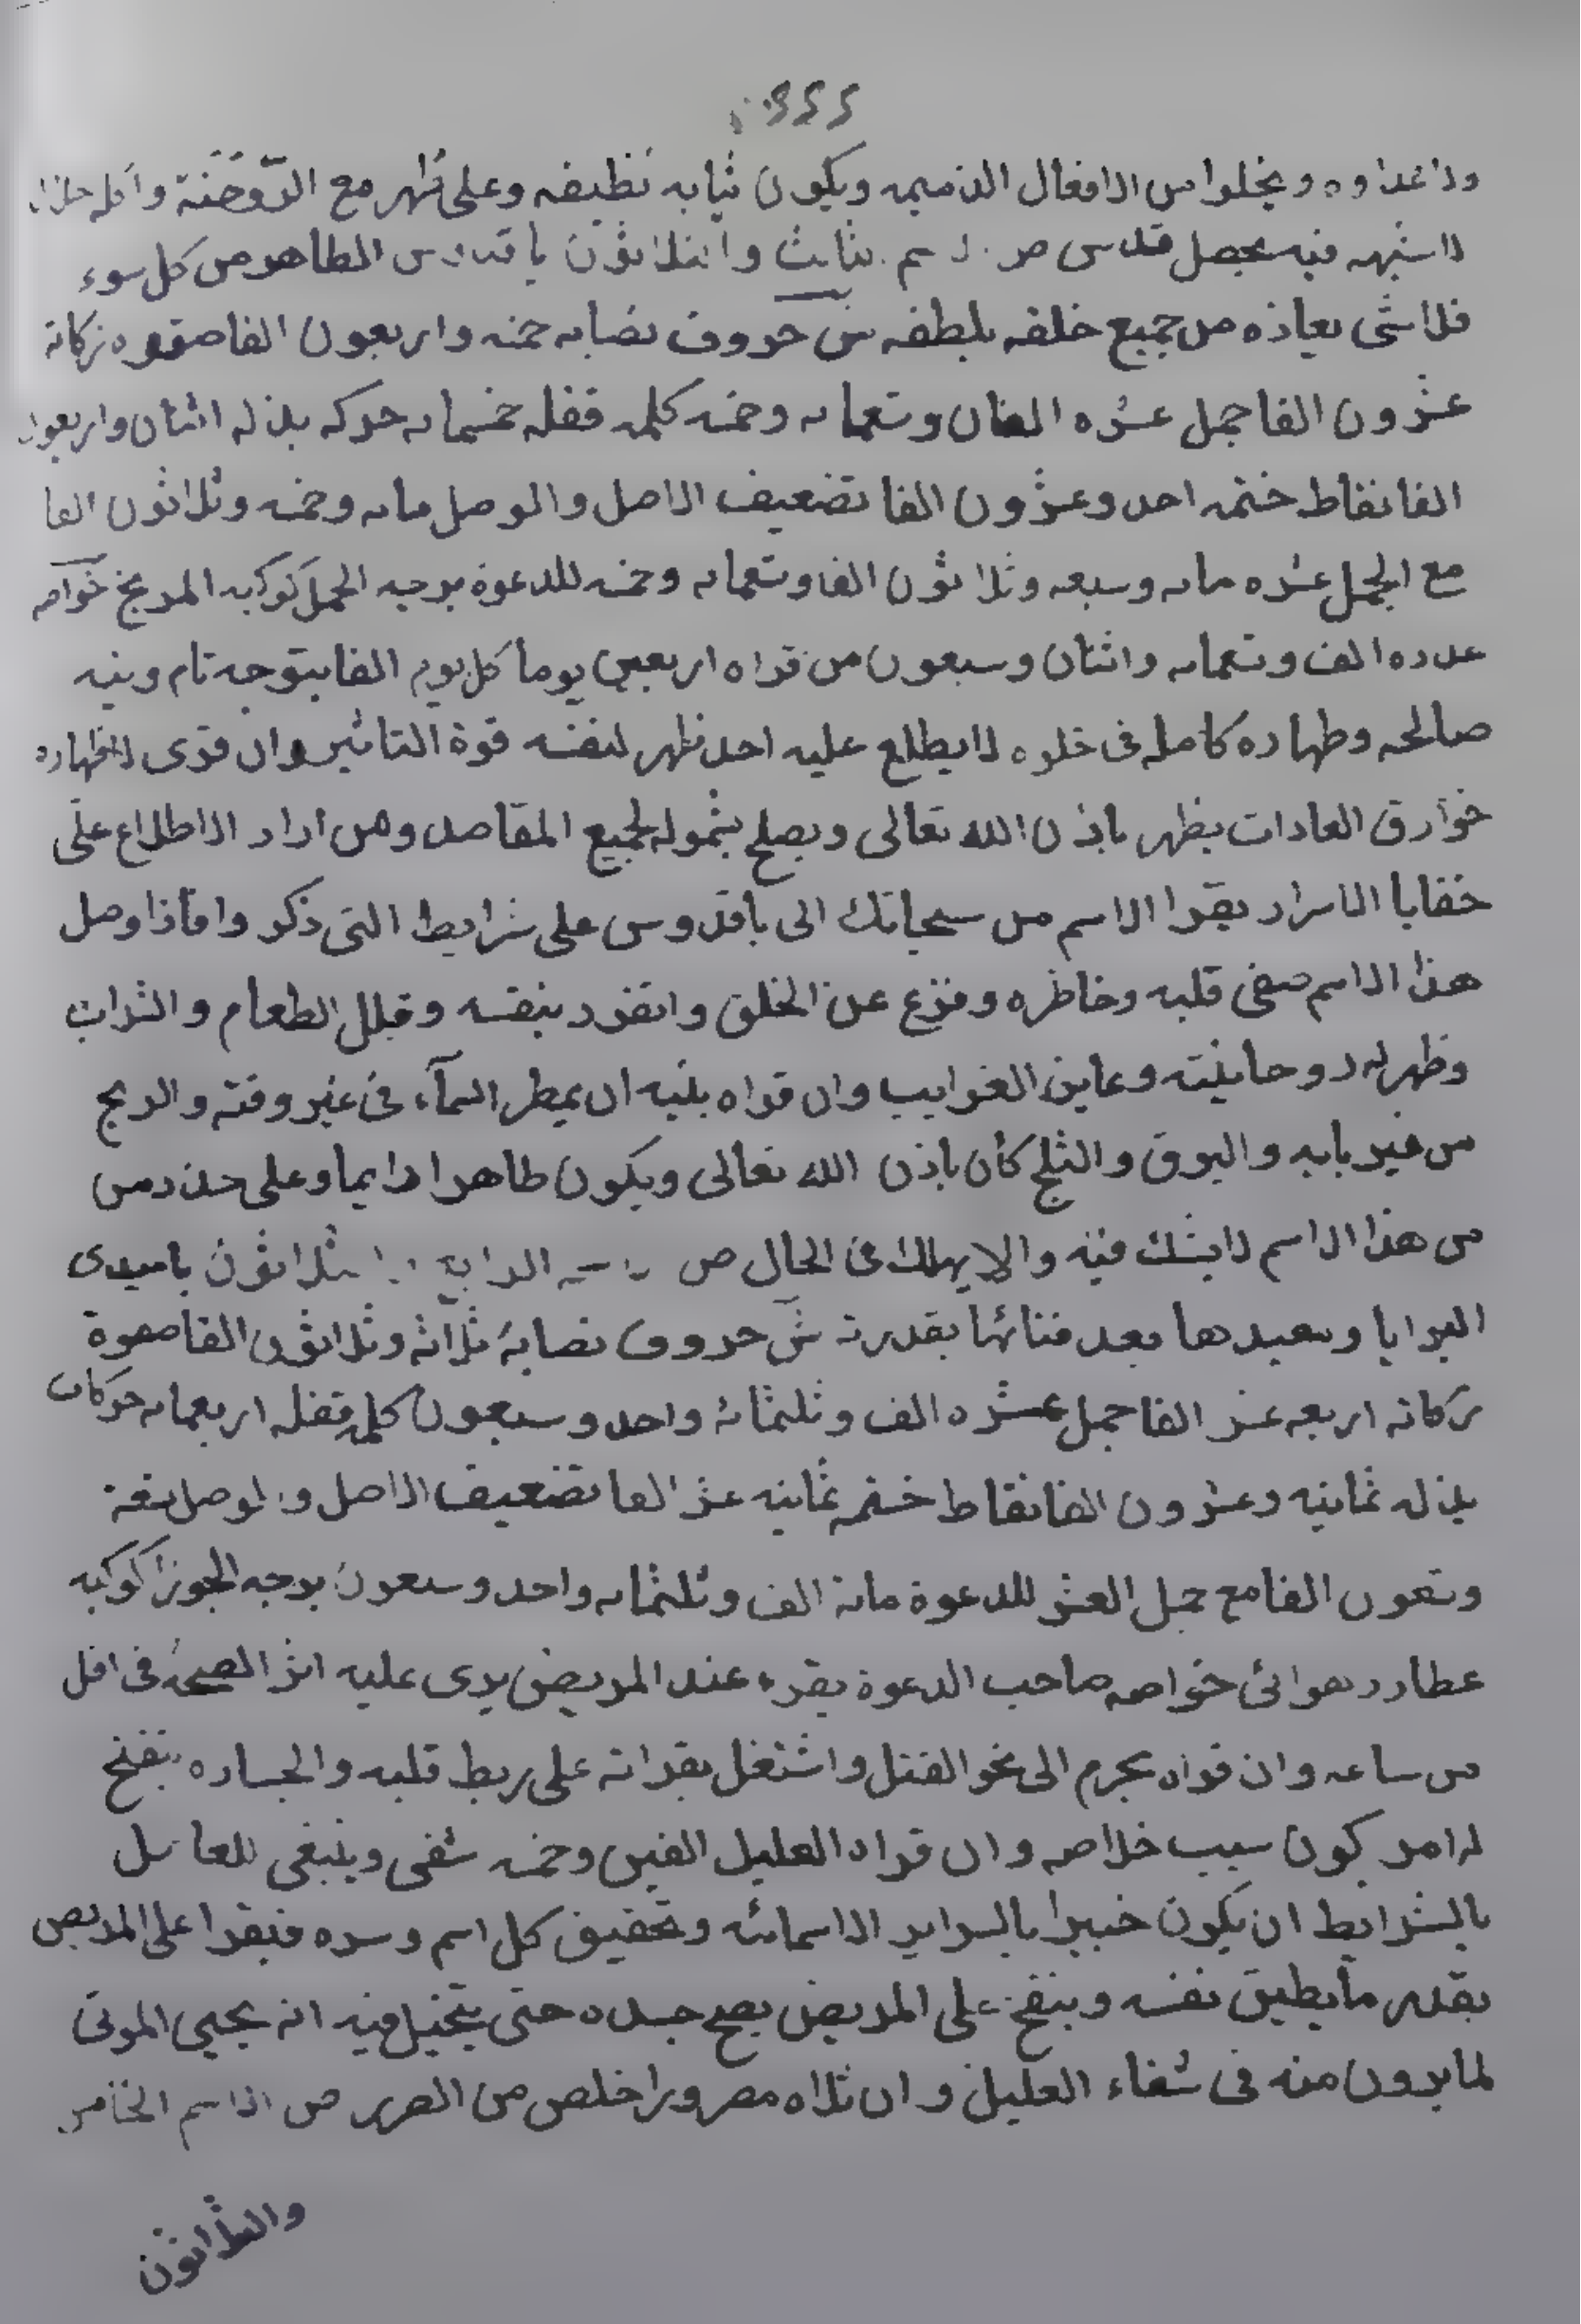 ولا غذاوه ويخلوا من الافعال الذميمه ويكون ثيابه نظيفه وعلى طهر مع الروضة واكله حلال
لا اشتبهه فيه يحصل قدسى ص ثالث والثلاثون يا قدوس الطاهر من كل سوء
فلا شى يعاذه من جميع خلقه بلطفه ش حروف نصابه خمسه واربعون الفا زكاته
عشرون الفا جمل عشره الفان وتسعمايه وخمسه كلمه قفله خمسمايه حركه بذله اثنان واربعون
الفا نقاط ختمه احد وعشرون الفا تضعيف الاصل والوصل مايه وخمسه وثلاثون الفا
مع الجمل عشره مايه وسبعه وثلاثون الفا وتسعمايه وخمسه للدعوة برجيه الحمل كوكبه المريخ خواصه
عدده الف وتسعمايه واثنان وسبعون من قراه اربعين يوما كل يوم الفا بتوجه تام وبنيه
صالحه وطهاره كامله فى خلوه لا يطلع عليه احد ظهر لنفسه قوة التاثير وان قوى لاظهاره
خوارق العادات يظهر باذن الله تعالى ويصلح بثموله لجميع المقاصد ومن اراد الاطلاع على
خفايا الاسرار يقرا الاسم من سبحانك الى يا قدوس على شرايط التى ذكر واما اذا وصل
هذا الاسم صفى قلبه وخاطره وفزع عن الخلق وانفرد بنفسه وقلل الطعام والشراب
وظهر له روحانيته وعاين الغرايب وان قراه بنيه ان يمطر السمآء فى غير وقته والريح
من غير بابه والبرق والثلج كان باذن الله تعالى ويكون طاهرا دايما وعلى حذر من
من هذا الاسم لا يشك فيه والا يهلك فى الحال ص الرابع ثلاثون يا مبدى
البرايا ومعيدها بعد فنائها بقدرته ش حروف نصابه ثلاثه وثلاثون الفا صغوة
زكاته اربعه عشر الفا جمل عشره الف وثلثمائه واحد وسبعون كلمه قفله اربعمايه حركات
بذله ثمانيه وعشرون الفا نقاط ختمه ثمانيه عشر الفا تضعيف الاصل والوصل تسعة
وتسعون الفا مع جمل العشر للدعوة ماية الف وثلثمايه واحد وسبعون برجه الجوزا كوكبه
عطارد هوائى خواصه صاحب الدعوة يقرء عند المريض يرى عليه اثر الصحة فى اقل
من ساعه وان قراه مجرم الى نحو القتل واشتغل بقراته على ربط قلبه والجساره ينفتح
له امر كون سبب خلاصه وان قراه العليل الفين وخمسه شفى وينبغى للعامل
بالشرايط ان يكون خبيرا بالسراير الاسمائه وتحقيق كل اسم وسره فيقرا على المريض
بقدر ما يطيق نفسه وينفخ على المريض يصح جسده حتى يتخيل فيه انه يحيى الموتى
لما يرون منه فى شفاء العليل وان تلاه مضرورا خلص من الضرر ص الاسم الخامس
والثلاثون